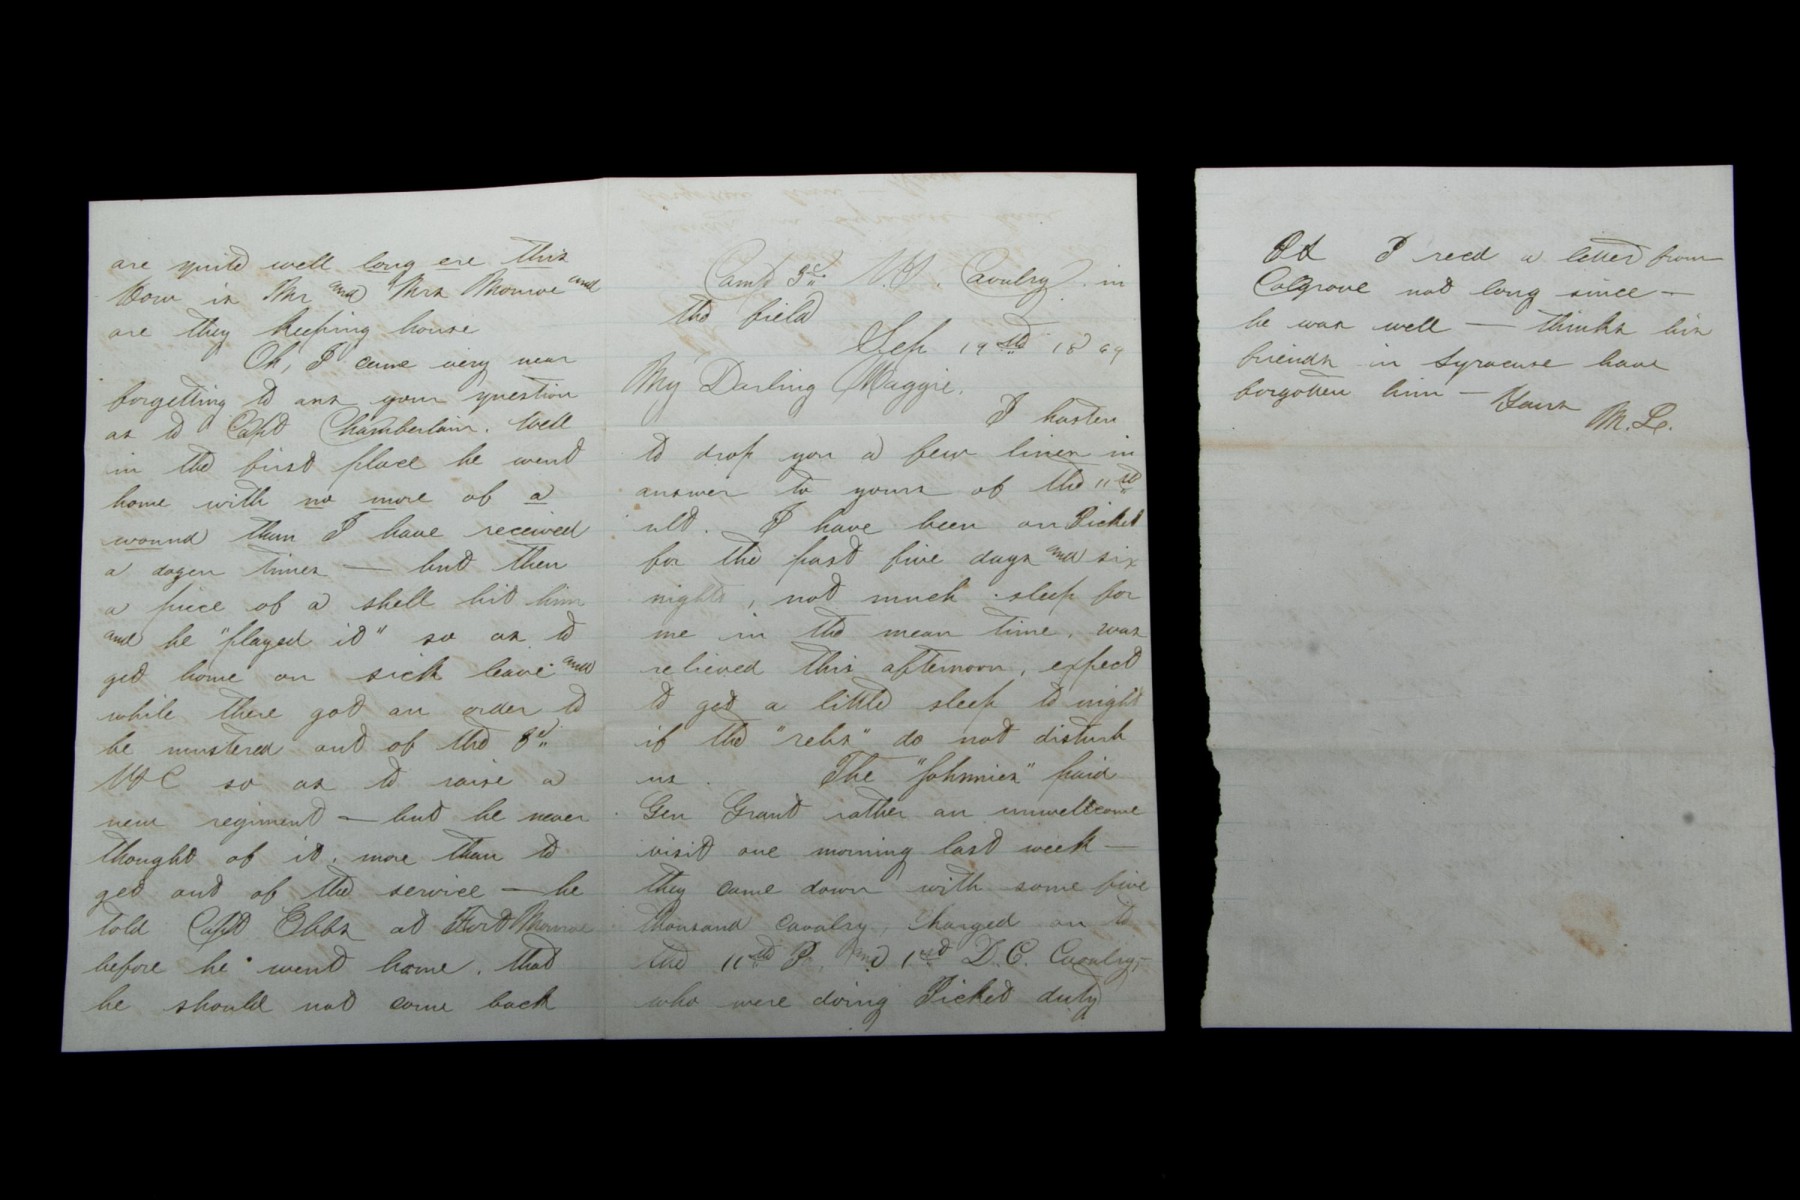 are quite well long ere this
How is Mr and Mrs Monroe and
are they keeping house
Oh, I came very near
forgetting to ans your question
as to Capt Chamberlain. Well
in the first place he went
home with no more of a
wound than I have received
a dozen times — but then
a piece of a shell hit him
and he "played it" so as to
get home on sick leave and
while there got an order to
be mustered out of the 3d
NYC so as to raise a
new regiment — but he never
thought of it, more than to
get out of the service — he
told Capt Ebbs at Fort Monroe
before he went home, that
he should not come back
Camp 3d N.Y. Cavalry in
the field
Sep 19th 1864
My Darling Maggie.
I hasten
to drop you a few lines in
answer to yours of the 11th
ult. I have been on Picket
for the past five days and six
nights, not much sleep for
me in the mean time, was
relieved this afternoon, expect
to get a little sleep to night
if the "rebs" do not disturb
us. The "Johnnies" paid
Gen Grant rather an unwellcome
visit one morning last week —
they came down with some five
thousand cavalry, charged on to
the 11th P. and 1st D.C. Cavalry,—
who were doing Picket duty
Ps I recd a letter from
Colgrove not long since —
he was well — thinks his
friends in Syracuse have
forgotten him — Yours
M. L.